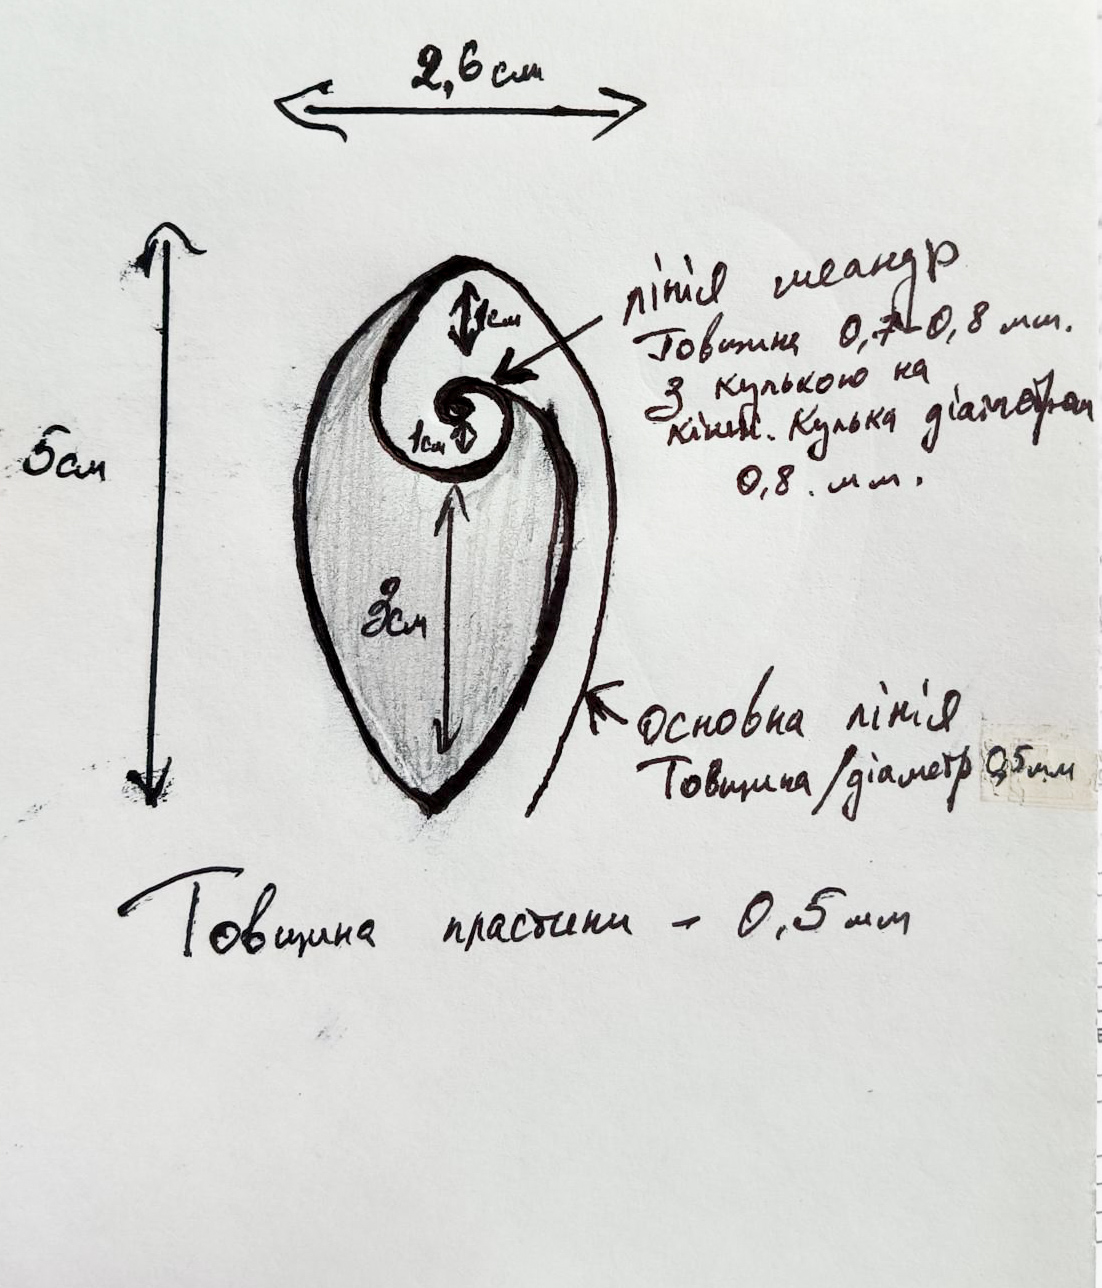 2,6 см
лінія меандр
Товщина 0,7-0,8 мм.
1см
З кулькою на
кінці. Кулька діаметром
1см
5см
0,8 мм.
3см
основна лінія
Товщина/діаметр 0,5мм
Товщина пластини - 0,5 мм